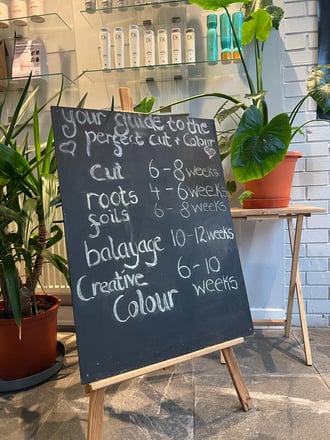 your guide to the
perfect cut + Colour
cut 6-8 weeks
roots 4-6 weeks
foils 6-8 weeks
balayage 10-12 weeks
Creative 6-10
Colour weeks